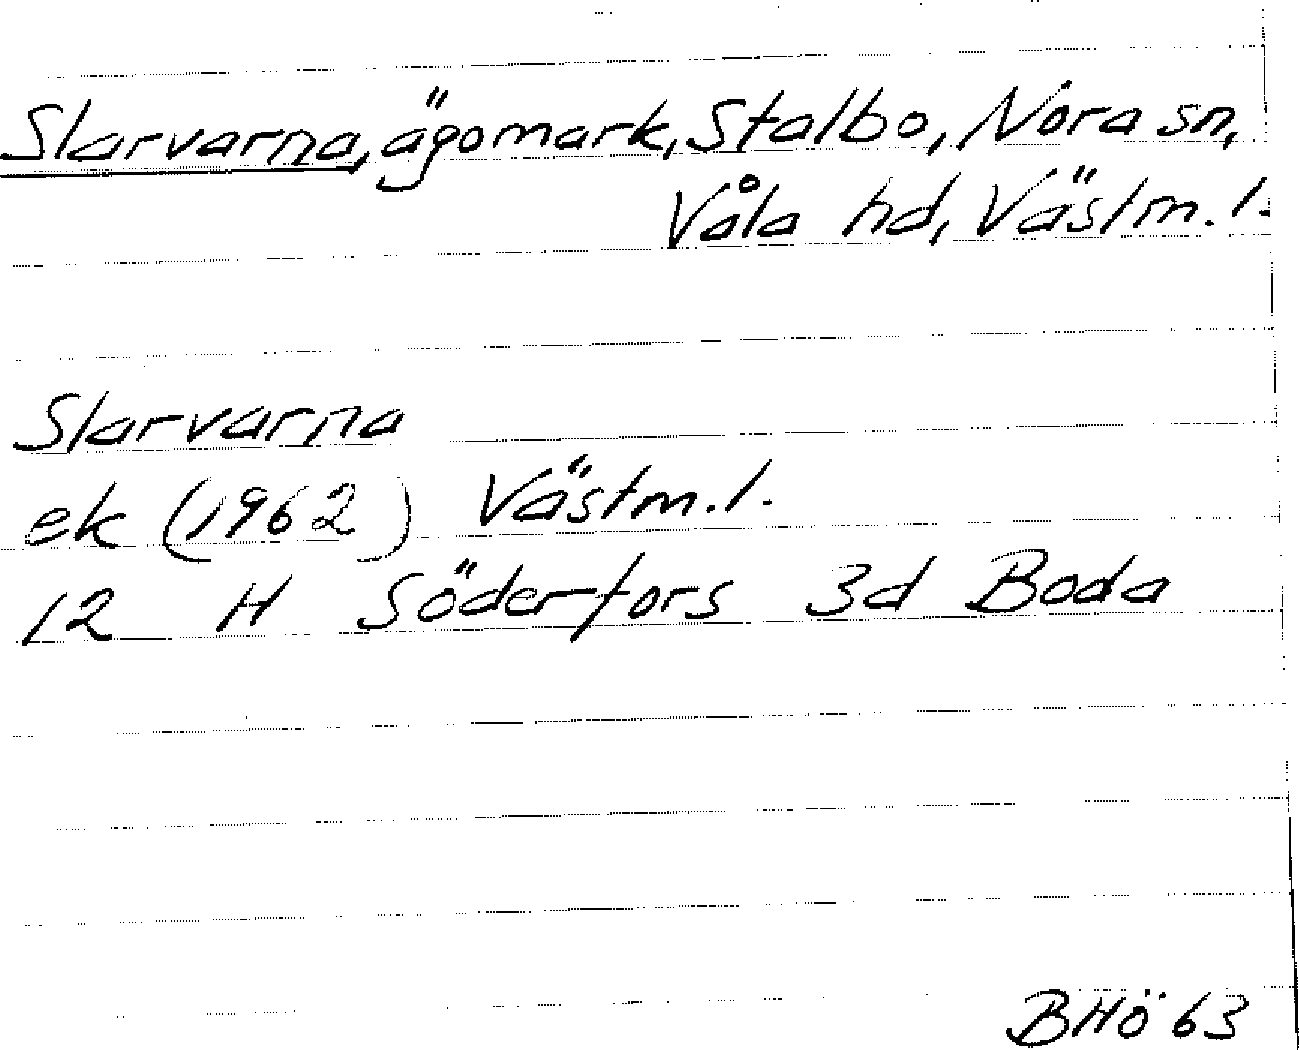 Slarvarna, ägomark, Stalbo, Nora sn,
Våla hd, Västm. l.
Slarvarna
ek (1962) Västm. l.
12 H Söderfors 3d Boda
BHö 63